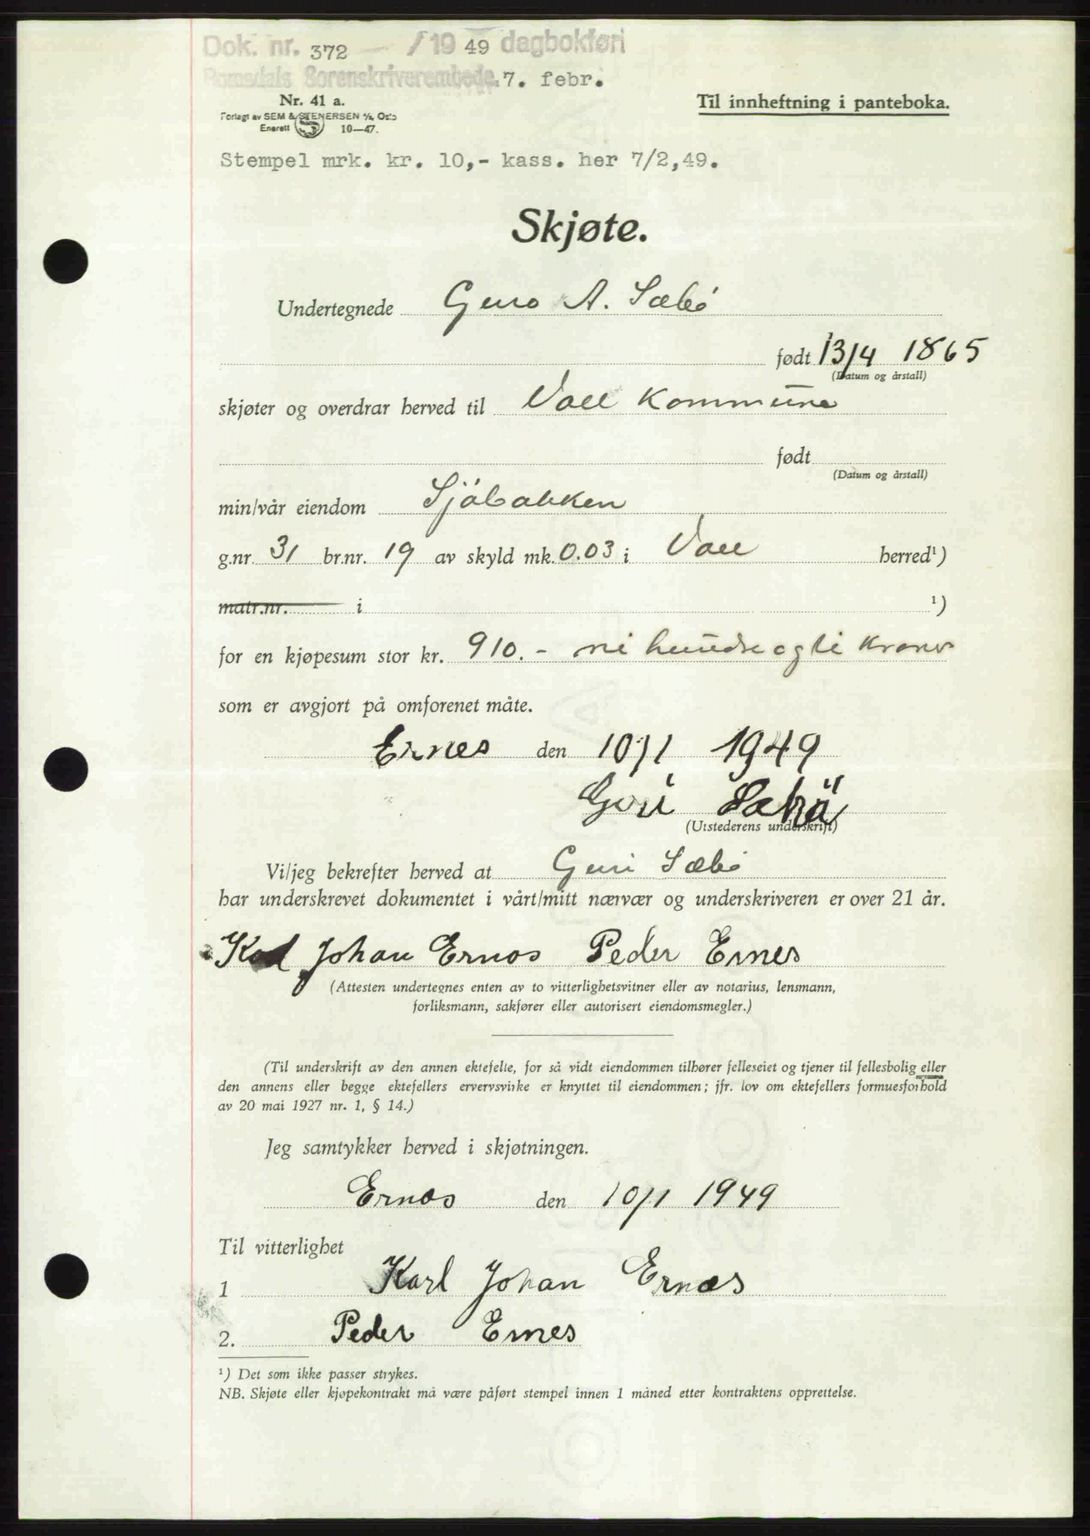 Dok. nr. 372 / 19 49 dagbokført
Romsdals Sorenskriverembede. 7. febr.
Nr. 41 a.
Til innheftning i panteboka.
Forlagt av SEM & STENERSEN A/S, Oslo
Enerett S 10—47.
Stempel mrk. kr. 10,- kass. her 7/2,49.
Skjøte.
Undertegnede Guro A. Sæbö
født 13/4 1865
(Datum og årstall)
skjøter og overdrar herved til Voll Kommune
født
(Datum og årstall)
min/vår eiendom Sjöbakken
g.nr. 31 br.nr. 19 av skyld mk. 0.03 i Voll herred¹)
matr.nr. i ¹)
for en kjøpesum stor kr. 910.- ni hundre og ti Kroner
som er avgjort på omforenet måte.
Ernes den 10/1 1949
Guri Sæbö
(Utstederens underskrift)
Vi/jeg bekrefter herved at Guri Sæbö
har underskrevet dokumentet i vårt/mitt nærvær og underskriveren er over 21 år.
Karl Johan Ernes Peder Ernes
(Attesten undertegnes enten av to vitterlighetsvitner eller av notarius, lensmann,
forliksmann, sakfører eller autorisert eiendomsmegler.)
(Til underskrift av den annen ektefelle, for så vidt eiendommen tilhører felleseiet og tjener til fellesbolig eller
den annens eller begge ektefellers ervervsvirke er knyttet til eiendommen; jfr. lov om ektefellers formuesforhold
av 20 mai 1927 nr. 1, § 14.)
Jeg samtykker herved i skjøtningen.
Ernes den 10/1 1949
Til vitterlighet
1 Karl Johan Ernes
2. Peder Ernes
¹) Det som ikke passer strykes.
NB. Skjøte eller kjøpekontrakt må være påført stempel innen 1 måned etter kontraktens opprettelse.